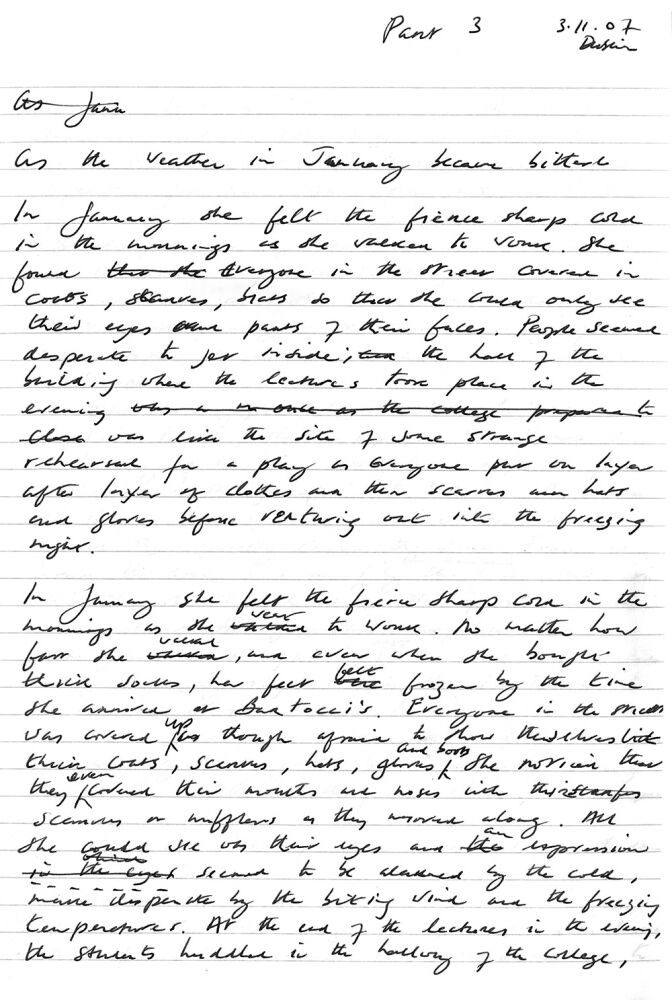 Part 3
3.11.07
Dublin
As Janu
As the weather in January became bitterl
In January she felt the fierce sharp cold
in the mornings as she walked to work. She
found that she Everyone in the street covered in
coats, scarves, hats so that she could only see
their eyes and parts of their faces. People seemed
desperate to get inside; the hall of the
building where the lectures took place in the
evening was as the college prepared to
close was like the site of some strange
rehearsal for a play as everyone put on layer
after layer of clothes and then scarves and hats
and gloves before venturing out into the freezing
night.
In January she felt the fierce sharp cold in the
mornings as she walked went to work. No matter how
fast she walked, and even when she bought
thick socks, her feet were felt frozen by the time
she arrived at Bartocci's. Everyone in the streets
was covered up as though afraid to show themselves
their coats, scarves, hats, gloves and boots She noticed that
they even covered their mouths and noses with
scarves or mufflers as they moved along. All
she could see was their eyes and the an expression
in the eyes seemed to be alarmed by the cold,
made desperate by the biting wind and the freezing
temperatures. At the end of the lectures in the evening,
the students huddled in the hallway of the college,